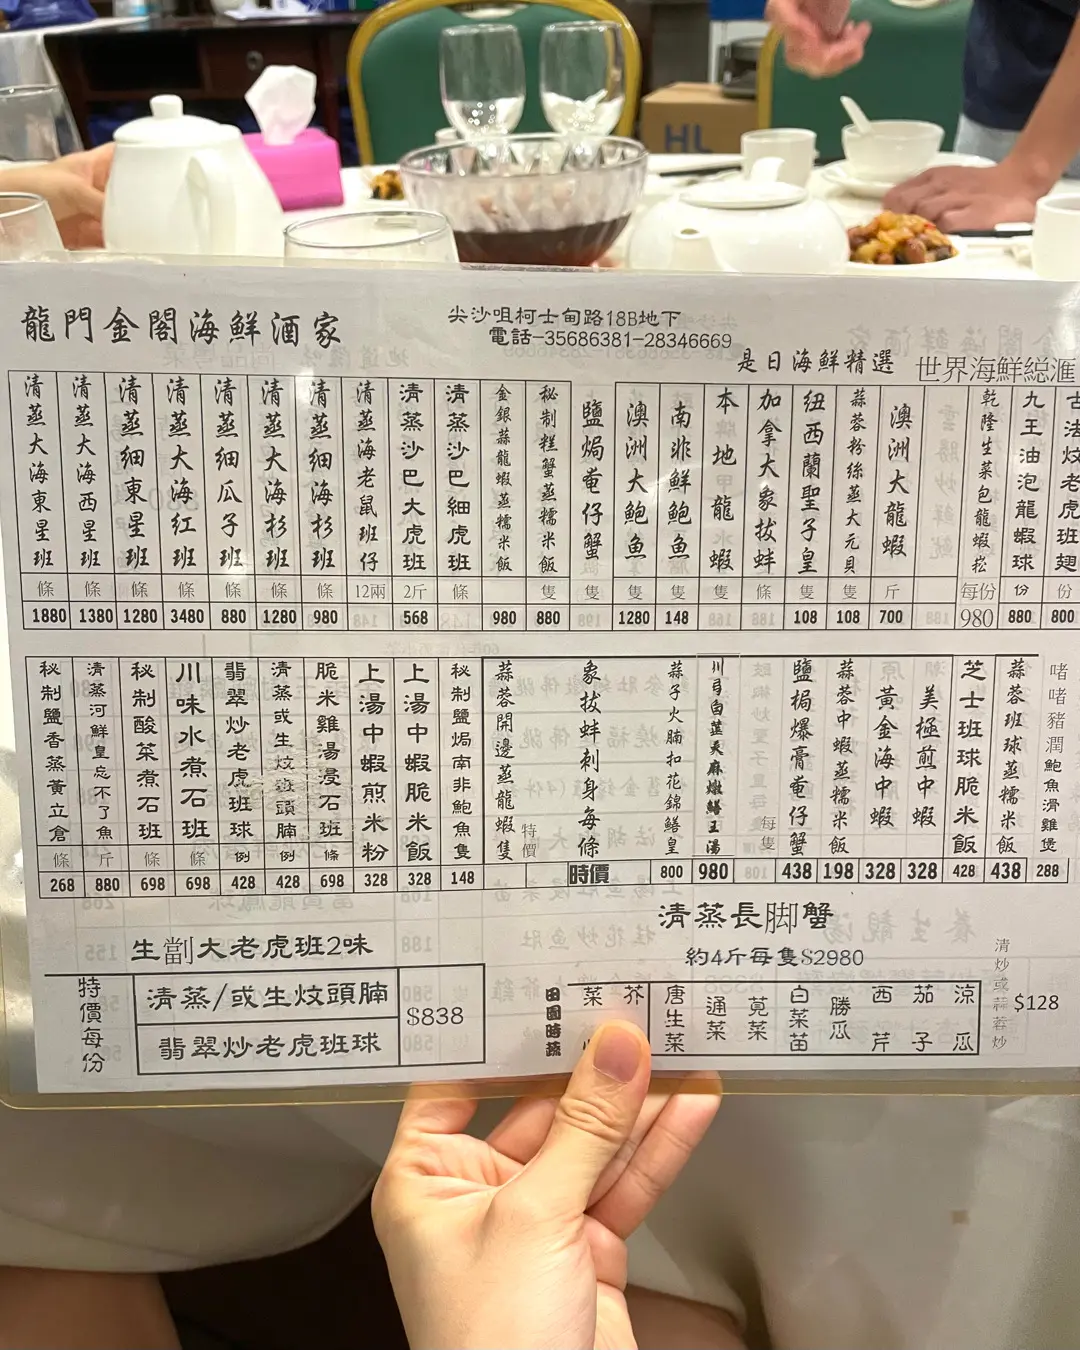 HL
龍門金閣海鮮酒家
尖沙咀柯士甸路18B地下
電話-35686381-28346669
是日海鮮精選
世界海鮮総滙
清蒸大海東星班 條 1880
清蒸大海西星班 條 1380
清蒸細東星班 條 1280
清蒸大海紅班 條 3480
清蒸細瓜子班 條 880
清蒸大海杉班 條 1280
清蒸細海杉班 條 980
清蒸海老鼠班仔 12兩
清蒸沙巴大虎班 2斤 568
清蒸沙巴細虎班 條
金銀蒜龍蝦蒸糯米飯 980
秘制糕蟹蒸糯米飯 隻 880
鹽焗奄仔蟹 隻
澳洲大鮑魚 隻 1280
南非鮮鮑魚 隻 148
本地龍蝦 隻
加拿大象拔蚌 條
纽西蘭聖子皇 隻 108
蒜蓉粉絲蒸大元貝 隻 108
澳洲大龍蝦 斤 700
乾隆生菜包龍蝦崧 每份 980
九王油泡龍蝦球 份 880
古法炆老虎班翅 份 800
秘制鹽香蒸黃立倉 條 268
清蒸河鮮皇忘不了魚 斤 880
秘制酸菜煮石班 條 698
川味水煮石班 條 698
翡翠炒老虎班球 例 428
清蒸或生炆班頭腩 例 428
脆米雞湯浸石班 條 698
上湯中蝦煎米粉 328
上湯中蝦脆米飯 328
秘制鹽焗南非鮑魚隻 148
蒜蓉開邊蒸龍蝦隻 特價
象拔蚌刺身每條 時價
蒜子火腩扣花錦鱔皇 800
川弓白芷天麻燉鱔王湯 980
每隻
鹽焗爆膏奄仔蟹 438
蒜蓉中蝦蒸糯米飯 198
黃金海中蝦 328
美極煎中蝦 328
芝士班球脆米飯 428
蒜蓉班球蒸糯米飯 438
啫啫豬潤鮑魚滑雞煲 288
生劏大老虎班2味
特價每份
清蒸/或生炆頭腩
翡翠炒老虎班球
$838
清蒸長脚蟹
約4斤每隻$2980
田園時蔬
菜
芥
唐生菜
通菜
莧菜
白菜苗
勝瓜
西芹
茄子
涼瓜
清炒或蒜蓉炒
$128